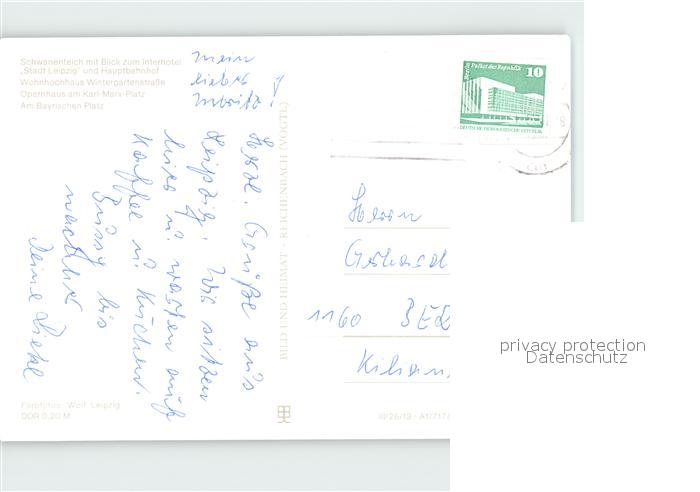 Schwanenteich mit Blick zum Interhotel
„Stadt Leipzig" und Hauptbahnhof
Wohnhochhaus Wintergartenstraße
Opernhaus am Karl-Marx-Platz
Am Bayrischen Platz
mein
liebes
Moritz!
Herzl. Grüße aus
Leipzig. Wir sitzen
hier u. warten auf
Kaffee u. Kuchen.
Bussy bis
nachher
Deine
Farbfotos: Wolf, Leipzig
DDR 0,20 M
BILD UND HEIMAT · REICHENBACH (VOGTL)
III/26/13 · A1/717/
Berlin, Palast der Republik
10
DEUTSCHE DEMOKRATISCHE REPUBLIK
Herrn
Gerhard
1160 BER
Kilian
privacy protection
Datenschutz